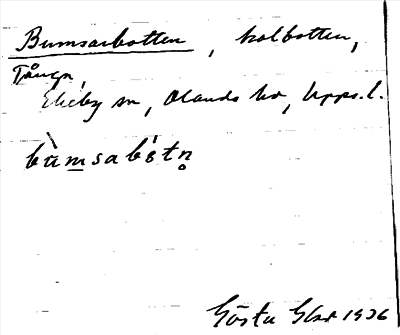 Bumsarbotten, kolbotten,
Tånga,
Ekeby sn, Olands hd, Upps. l.
bùmsabótn̥
Gösta 1936